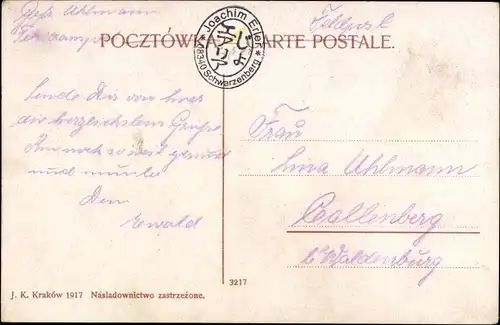 Gefr. Uhlmann
Feldpost
POCZTÓWKA CARTE POSTALE.
* Joachim Erler *
08340 Schwarzenberg
Sende Dir von hier
die herzlichsten Grüße
Bin noch soweit gesund
und munter
Dein
Ewald
Frau
Lina Uhlmann
Callenberg
b. Waldenburg
3217
J. K. Kraków 1917 Násladownictwo zastrzeżone.